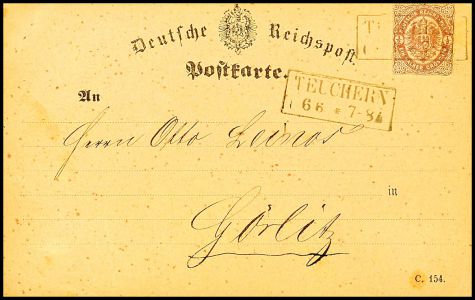 Deutsche Reichspost.
Postkarte.
TEUCHERN
6 6 * 7-8
An
Herrn Otto
in
Görlitz
C. 154.